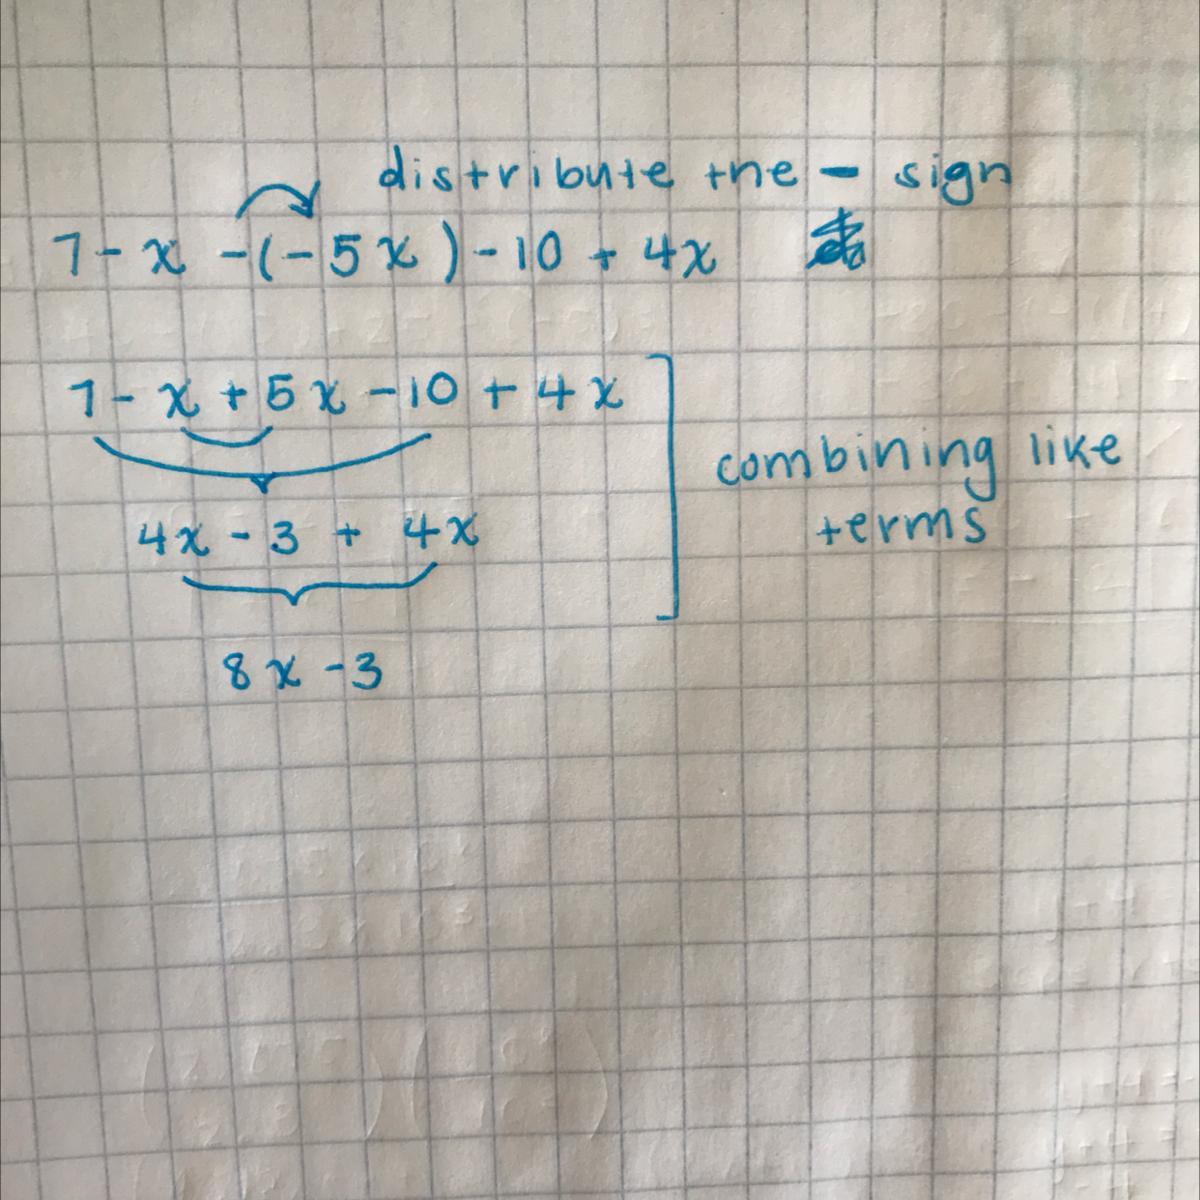 distribute the - sign
7 - x - (-5x) - 10 + 4x
7 - x + 5x - 10 + 4x
combining like
terms
4x - 3 + 4x
8x - 3